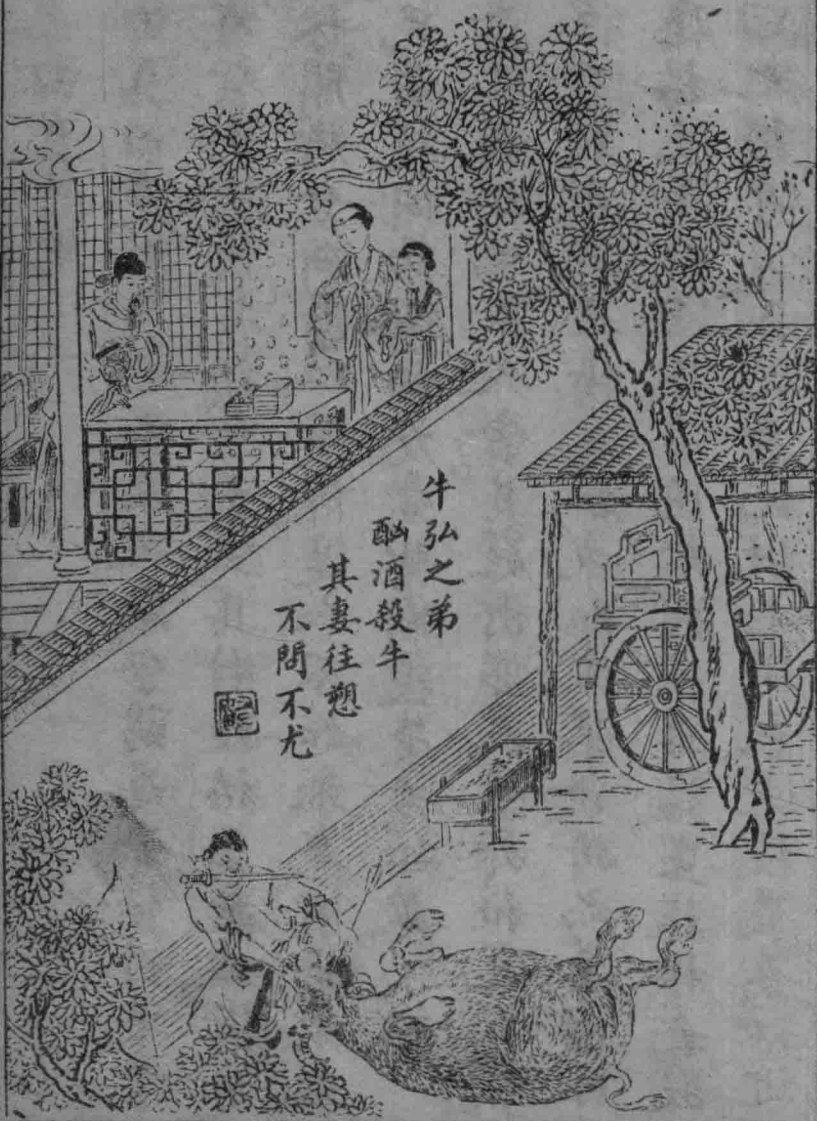 牛弘之弟
酗酒殺牛
其妻往愬
不問不尤